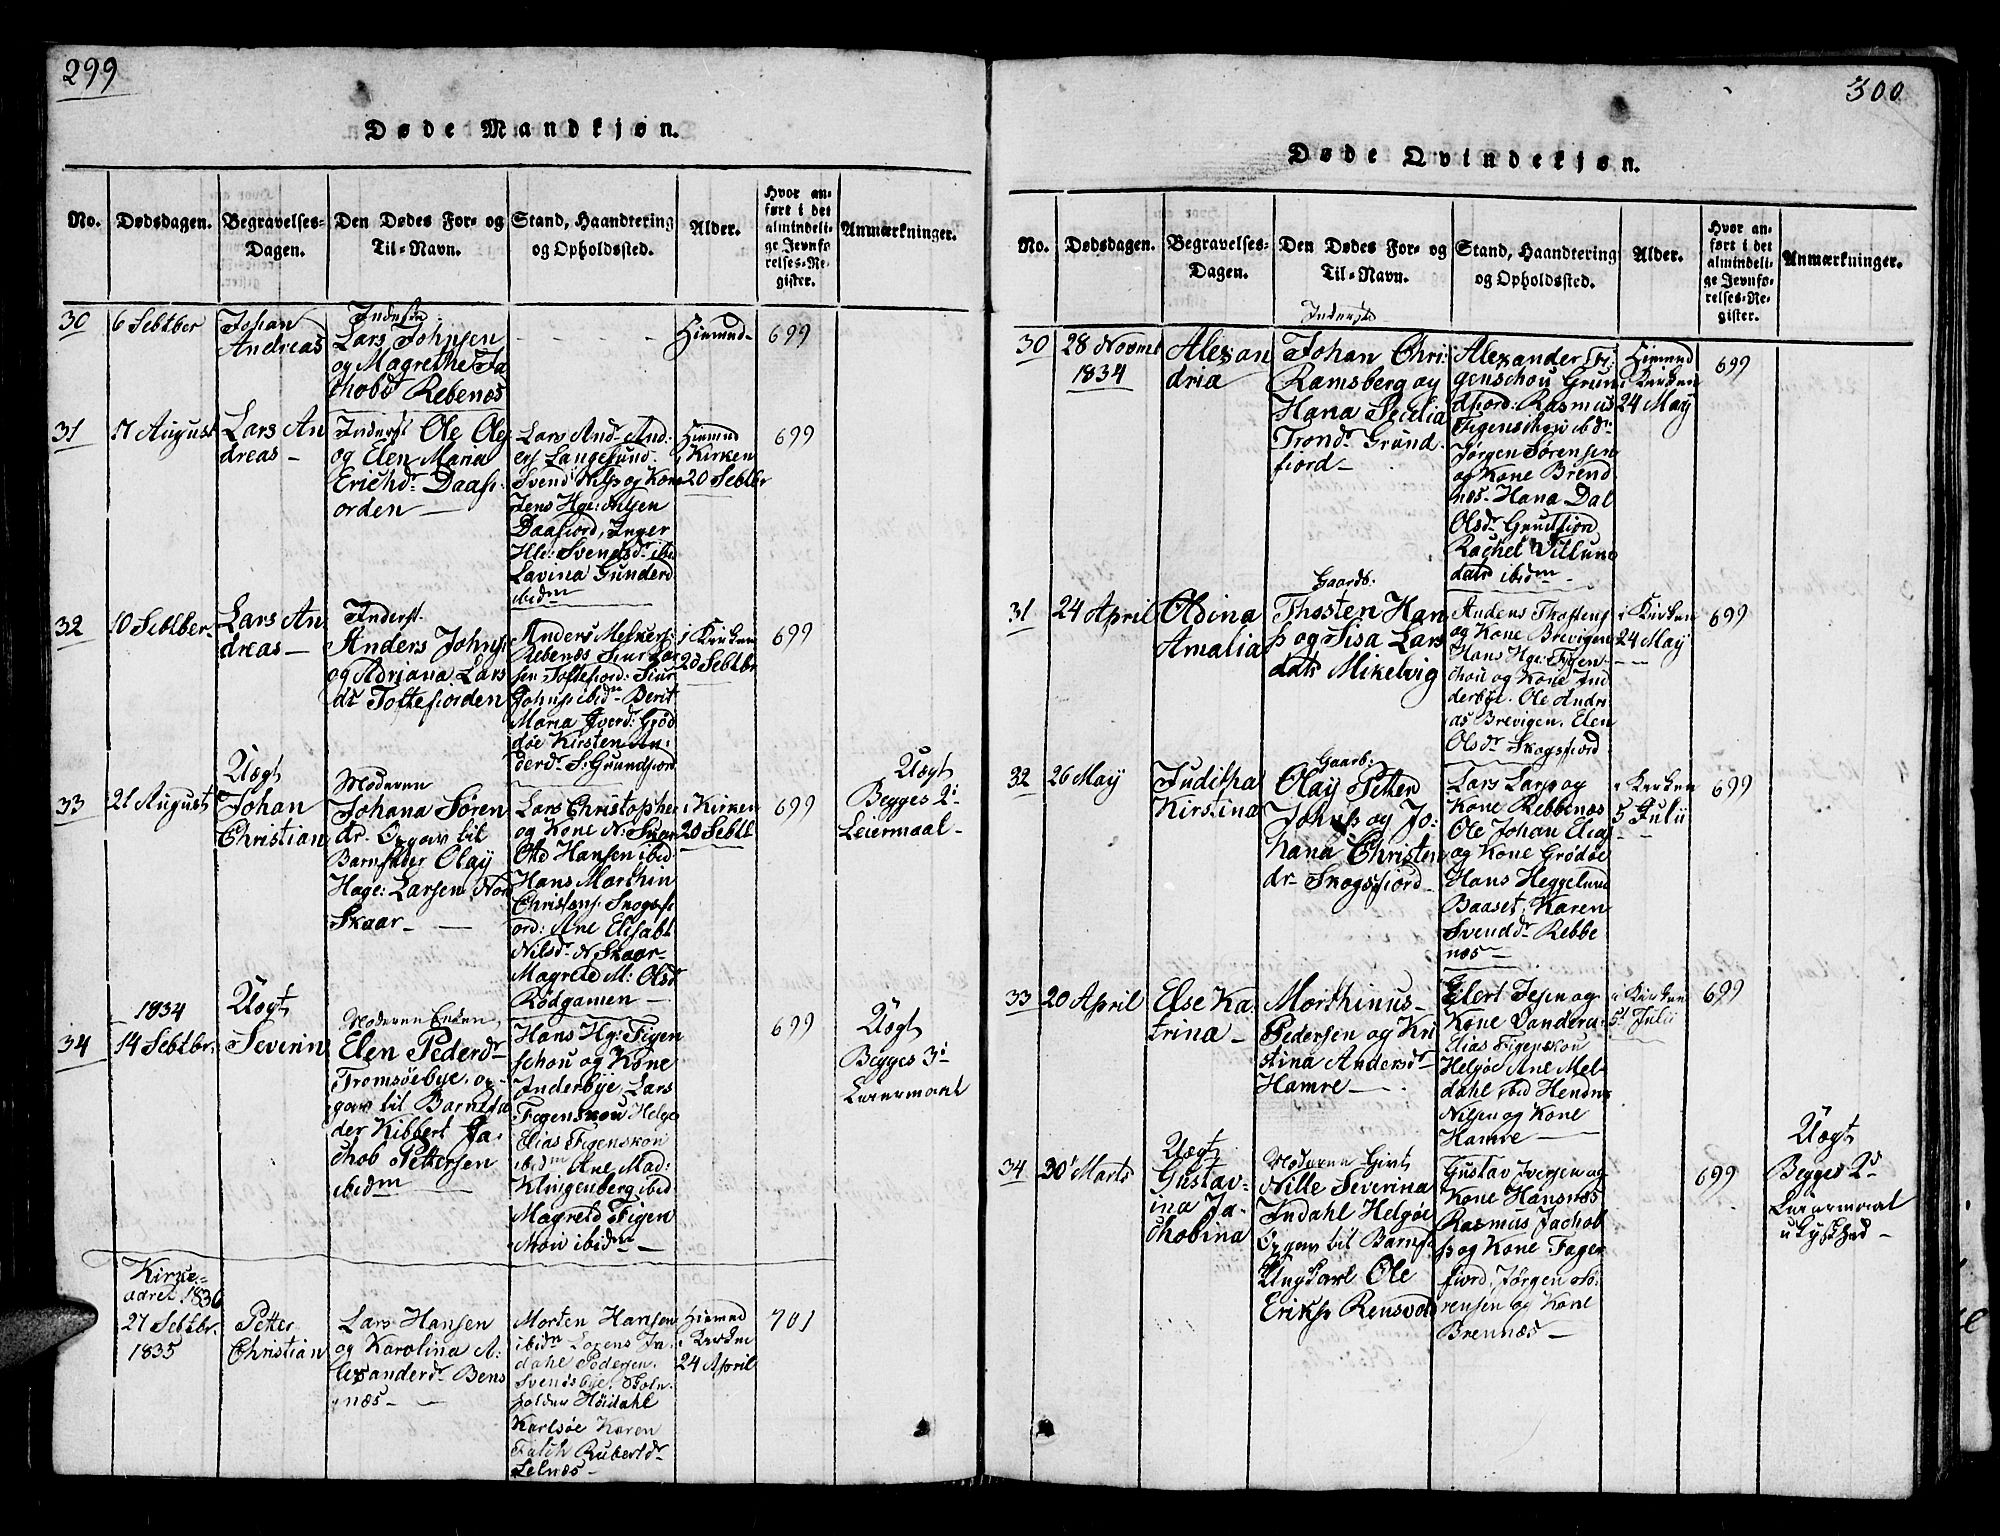 299
Døde Mandkjøn.
No.
Dødsdagen.
Begravelses-
Dagen.
Den Dødes For- og
Til-Navn.
Stand, Haandtering
og Opholdssted.
Alder.
Hvor an-
ført i det
almindeli-
ge Jevnfø-
relses-Re-
gister.
Anmærkninger.
30
6 Sebtber
Johan
Andreas
Lars Johnsen
og Magrethe Ja
chobsd Rebenæs
Hiemd
699
31
17 August
Lars An
dreas
Inderst Ole Ols
og Elen Maria
Erichdr Daafi
orden
Lars And. And:
ers Langesund
Svend Nilss og Kone
Jens Hge: Nilsen
Daafiord, Inger
Hle: Svendsdr ibid
Lavina Gunderd
ibidm
Hiemd
i Kirken
20 Sebtbr
699
32
10 Sebtber
Lars An
dreas
Inderst
Anders Johns
og Adriana Lars
dr Toftefiorden
Anders Melkers
Rebenæs Siur Lar
sen Toftefiord: Siur
Johns ibidm Berit
Maria Iverd: Grød
døe Kirsten An:
derdr S: Grundfiord
i Kirken
20 Sebtbr
699
33
21 August
Uægt
Johan
Christian
Moderen
Johana Søren
dr. Opgav til
Barnfader Olay
Hage: Larsen Nord
Skaar
Lars Christopher
og Kone N: Skaar
Old Hansen ibid
Hans Morthen
Christens. Skogsfi
ord: Ane Elisabt
Nilsdr N. Skaar
Magrete M: Olsd
Rødgamen
i Kirken
20 Sebtb
699
Uægt
Begges 2i
Leiermaal
34
1834
14 Sebtbr.
Uægt
Severin
Moderen Enken
Elen Pederdr
Tromsøebye, op-
gav til Barnefa
der Kibbert Ja-
chob Pettersen
ibidm
Hans Hg: Figen
schou og Kone
Inderbye, Lars
Figenskou Helgø
Elias Figenskou
ibidm Ane Mad:
Klingenberg ibid
Magreta Figen
skou ibidm
699
Uægt
Begges 3i
Leiermaal
Kirke-
aaret 1836
27 Sebtbr.
1835
Petter
Christian
Lars Hansen
og Karolina A:
lexanderdr Bens
næs
Morten Hansen
ibidm Lorens Ja
dahl Pedersen
Svendsbye,
Høidahl
Karlsøe Karen
Falch Rubertdr
Selnæs
Hiemd
i Kirken
24 April
701
300
Døde Qvindekjøn.
No.
Dødsdagen.
Begravelses-
Dagen.
Den Dødes For- og
Til-Navn.
Stand, Haandtering
og Opholdssted.
Alder.
Hvor an-
ført i det
almindeli-
ge Jevnfø-
relses-Re-
gister.
Anmærkninger.
30
28 Novmb
1834
Alexan
dria
Inderst
Johan Chri:
Ramsberg og
Hana Secilia
Trondr Grund
fiord
Alexander Fi
genschou Grun
dfiord: Rasmus
Figenschou ibdr
Jørgen Sørensen
og Kone Brend
næs. Hana Dal
Olsdr Grundfiord
Rachel
datr ibidm
Hiemd
i Kirken
24 May
699
31
24 April
Oldina
Amalia
Gaardb:
Thosten Han
s og Sisa Lars
datr Mikelvig
Anders Thostens
og Kone Brevigen
Hans Hge: Figen
chou og Kone In
derbye. Ole Andre
as Brevigen. Elen
Olsdr Skogsfiord
i Kirken
24 May
699
32
26 May
Juditha
Kirstina
Gaardb:
Olay Petter
Johnss og Jo:
hana Christen
dr Skogsfiord
Lars Larss og
Kone Rebbenæs
Ole Johan Elias
og Kone Grødøe
Hans Heggelund
Baaset, Karen
Svenddr Rebbe
næs
i Kirken
5 Julii
699
33
20 April
Else Ka
trina
Morthinus
Pedersen og Kri
stina Andersdr
Hamre
Elert Jesen og
Kone Vandera
Elias Figenskou
Helgøe Ane Mel
dahl ibid Hendric
Nilsen og Kone
Hamre
i Kirken
5t Julii
699
34
30 Marts
Uægt
Gustav-
ina Ja
chobina
Moderen Givt
Nille Severina
Indahl Helgøe
Opgav til Barnf
Ungkarl Ole
Erikss Rensvold
Gustav Iversen og
Kone Hansnæs
Rasmus Jachob
s og Kone Fager
fiord. Jørgen Sö-
rensen og Kone
Brennæs
699
Uægt
Begges 2d
Leiermaal
ukyskhed